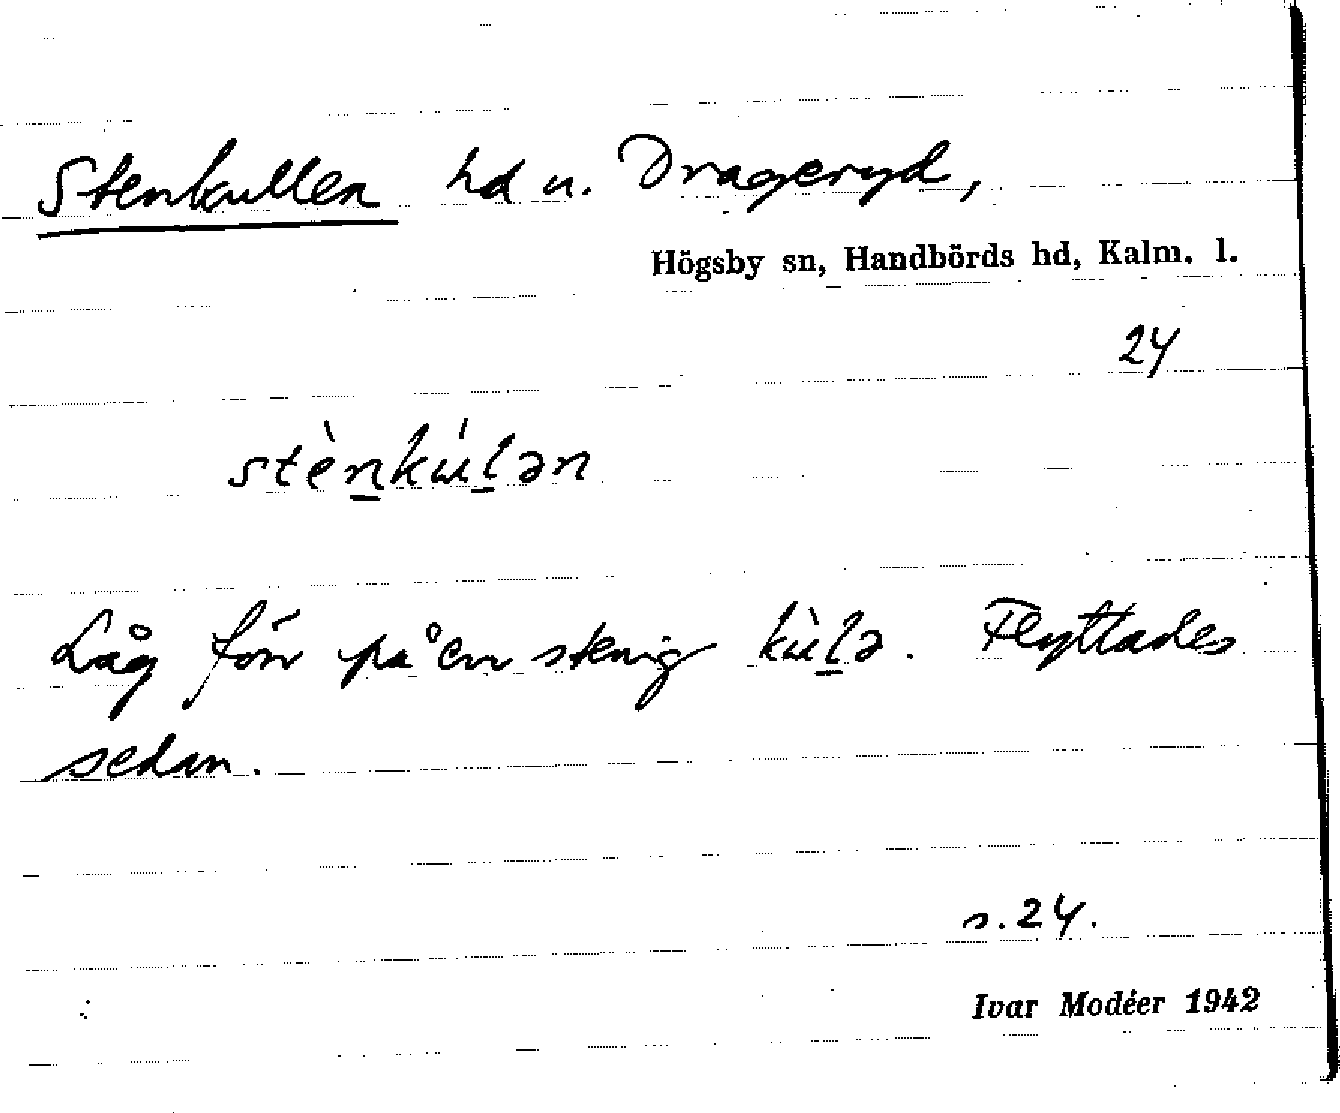 Stenkullen hd u. Drageryd,
Högsby sn, Handbörds hd, Kalm. l.
24
stènkúlən
Låg förr på en stenig kùlə. Flyttades
sedan.
s. 24.
Ivar Modéer 1942